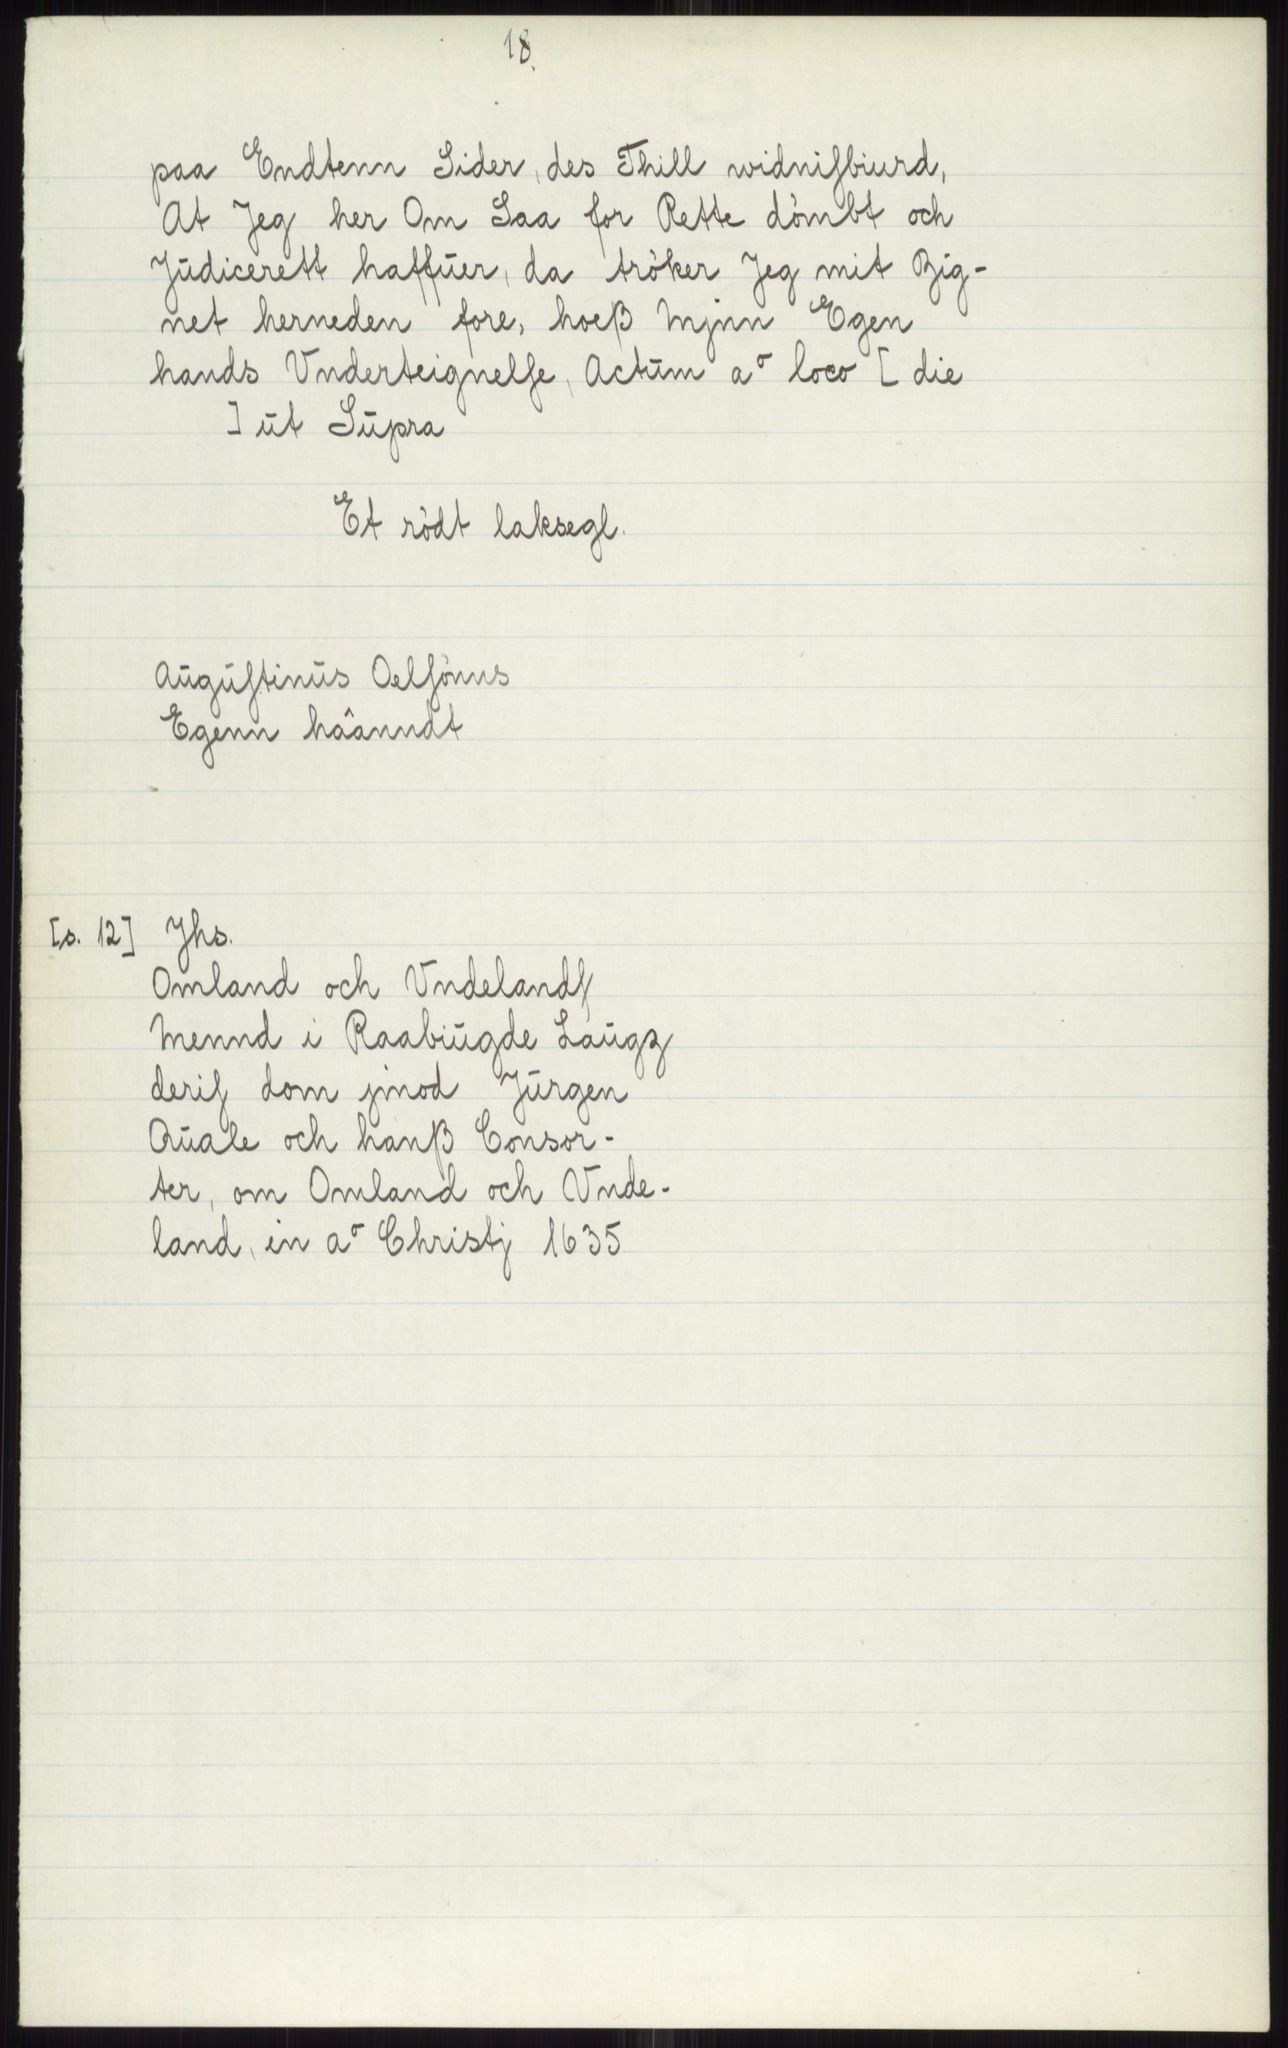 18.
paa Endtenn Sider, des Thill widniſbiurd,
At Jeg her Om Saa for Rette dömbt och
Jūdicerett haffūer, da tröker Jeg mit Zig-
net herneden fore, hoeß Mjnn Egen
hands Vnderteignelſe, Actūm a° loco [ die
] ūt Sūpra
Et rödt laksegl.
Aūgūſtinūs Oelſönns
Egenn hâanndt
[s. 12] Jhs.
Omland och Vndelandſ
Mennd i Raabiūgde Laūgz
deriſ dom jmod Jūrgen
Qūale och hanß Consor-
ter, om Omland och Vnde-
land, in a° Christj 1635